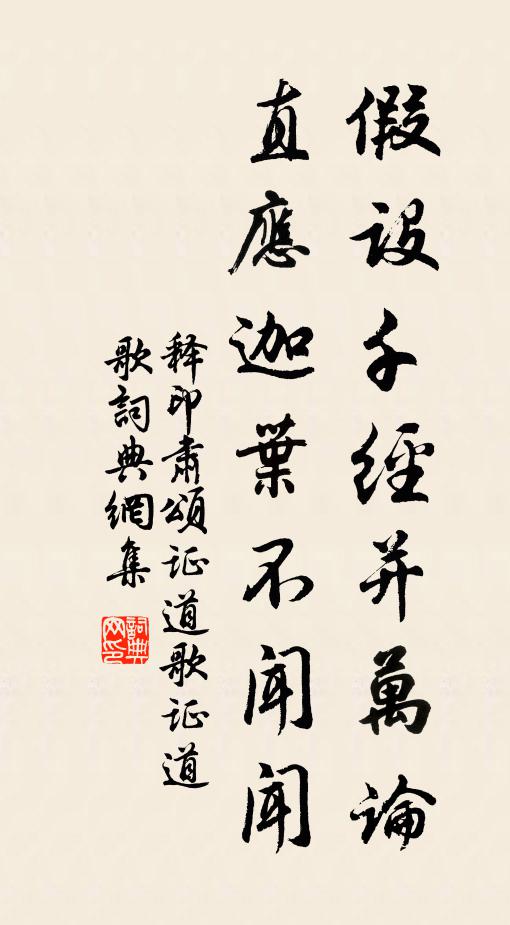 假設千經并萬論
直應迦葉不聞聞
释印肃頌证道歌证道
歌詞典網集
詞典网印